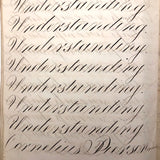 Understanding.
Understanding.
Understanding.
Understanding.
Understanding.
Understanding.
Understanding.
Cornelius